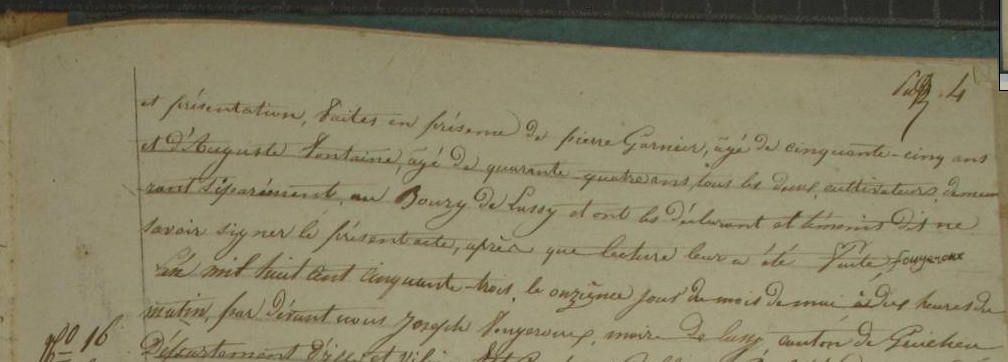 4
et présentation, faites en présence de pierre Garnier, âgé de cinquante-cinq ans
et d'Auguste Fontaine, âgé de quarante-quatre ans, tous les deux cultivateurs, demeu
rant séparément, au Bourg de Lassy et ont les déclarant et témoins dit ne
savoir signer le présent acte, après que lecture leur a été faite fougeroux
L'an mil huit cent cinquante-trois, le onzième jour du mois de mai à dix heures du
matin, par devant nous Joseph fougeroux, maire de Lassy, canton de Guichen
No 16
Département d'ille et Vilaine